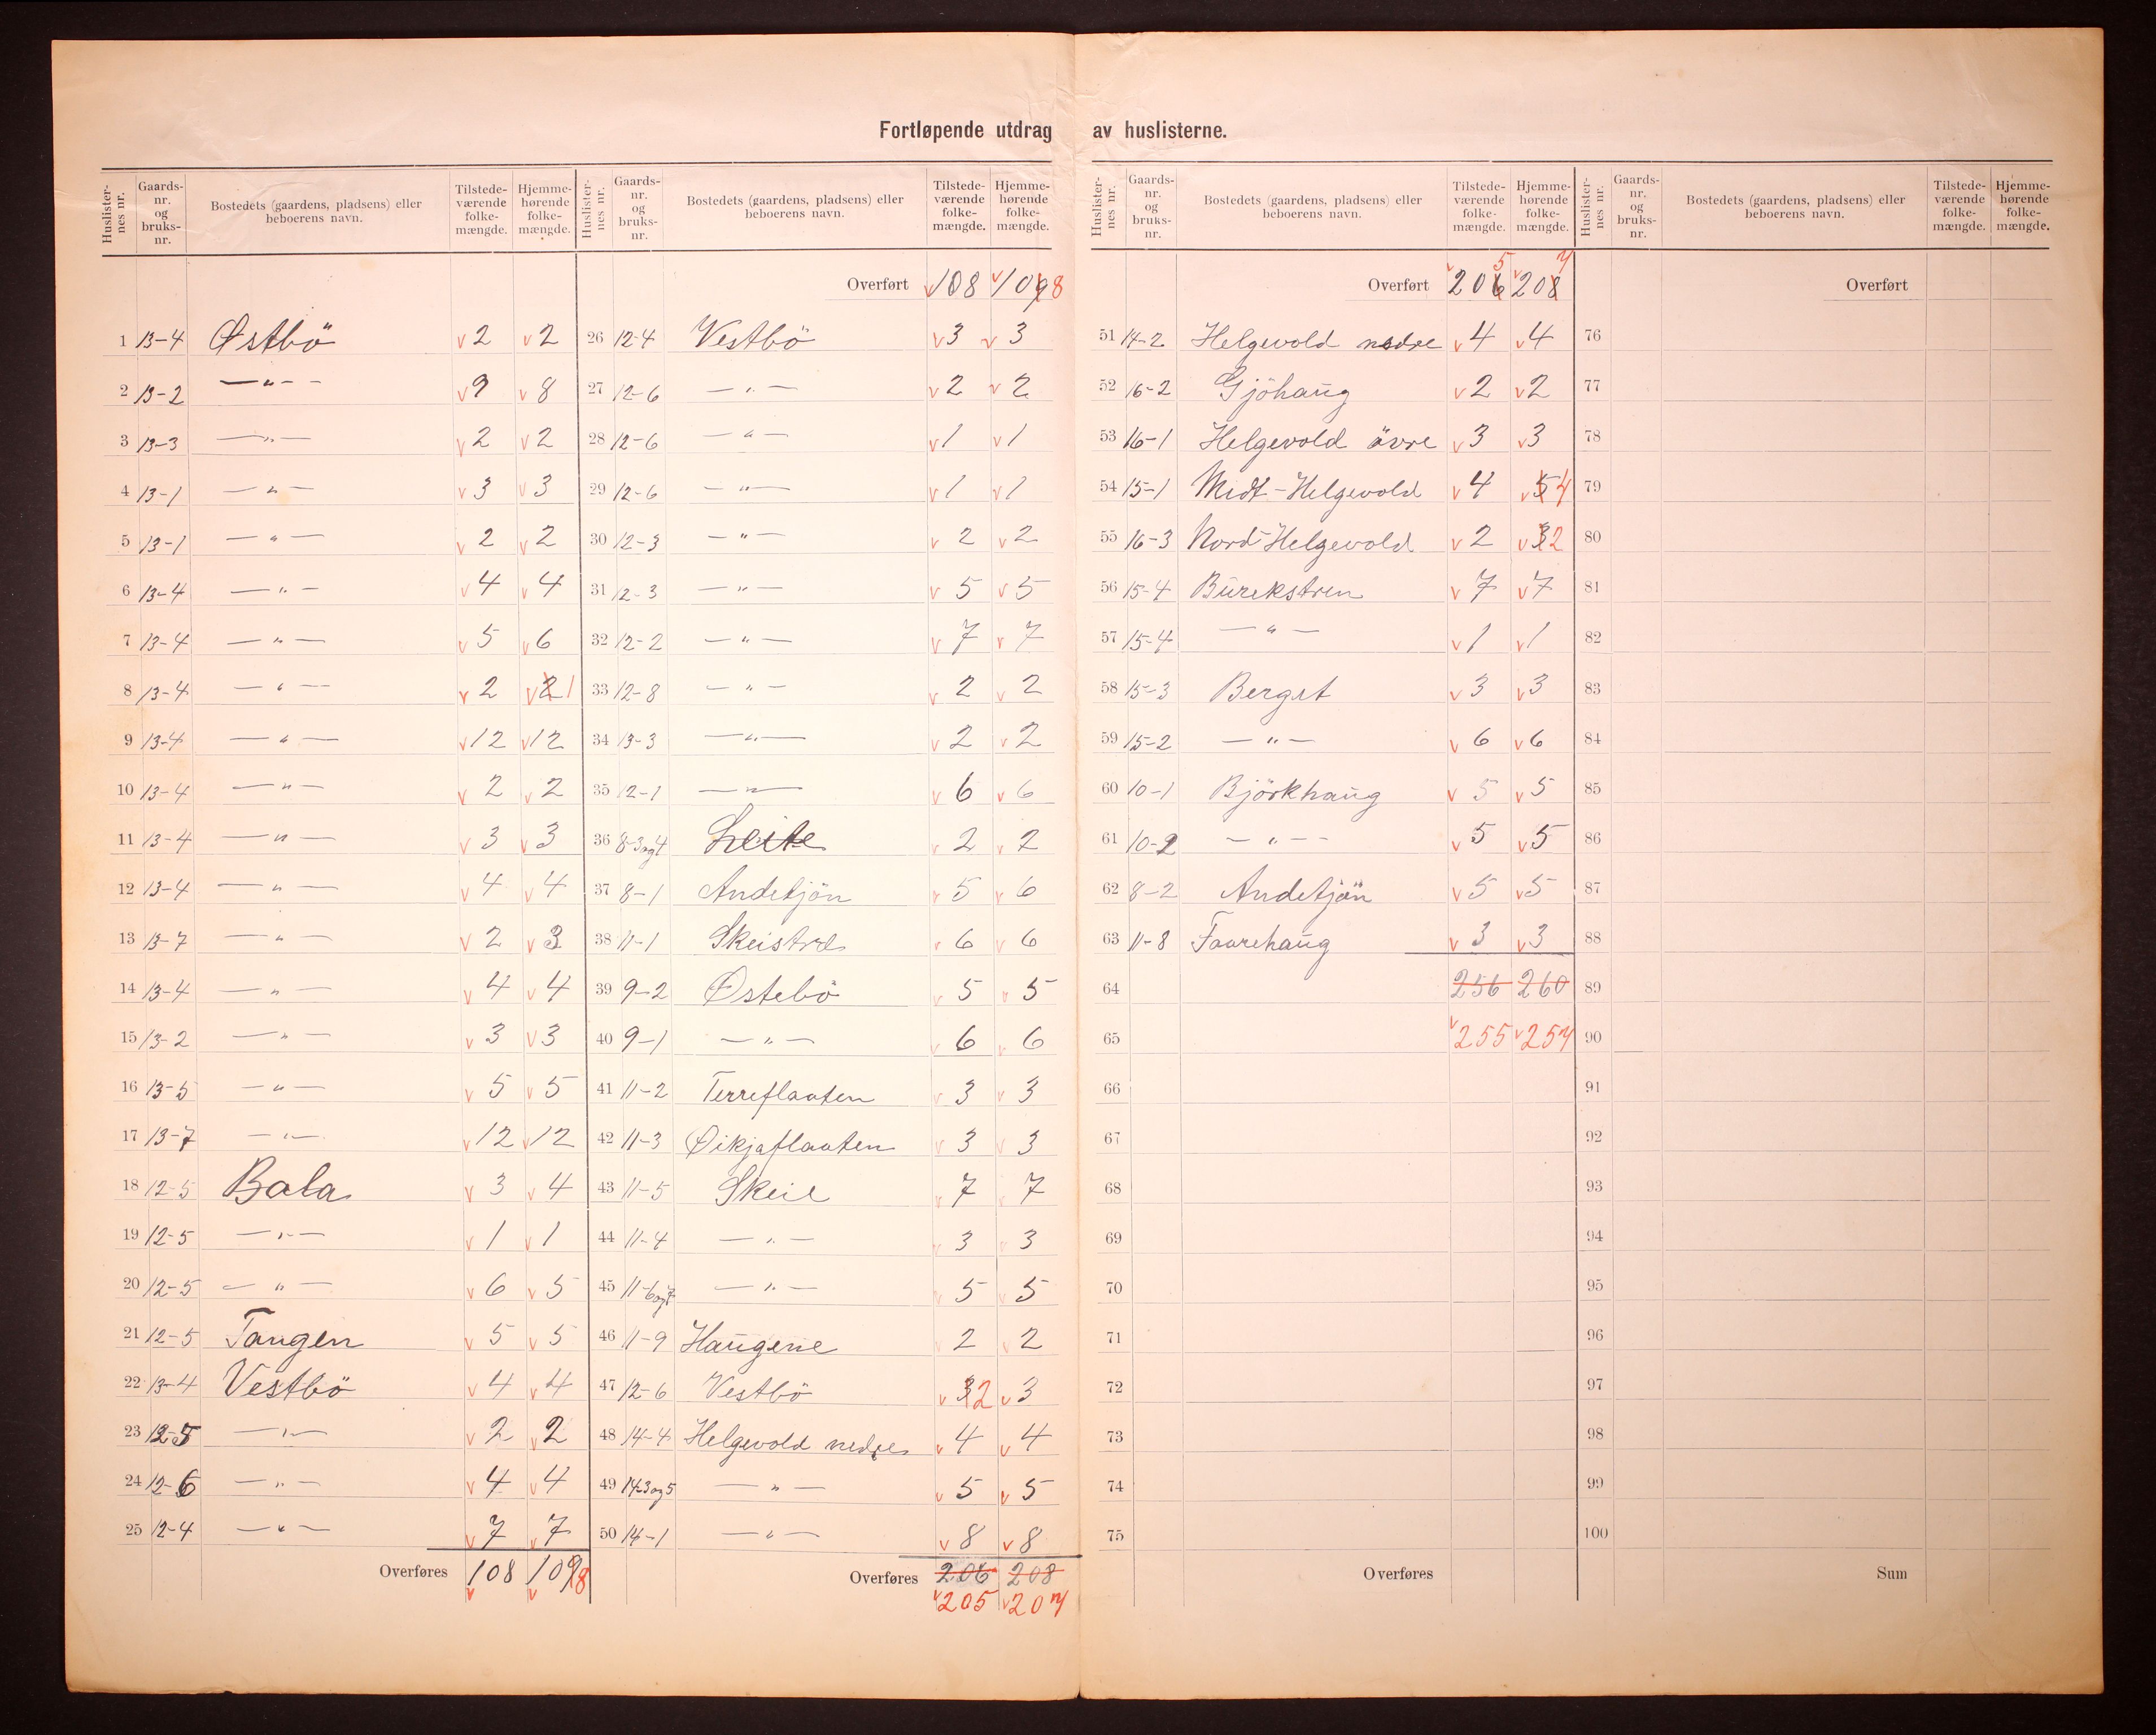 Fortløpende utdrag av huslisterne.
Huslisternes nr. Gaards-nr. og bruks-nr. Bostedets (gaardens, pladsens) eller beboerens navn. Tilstedeværende folkemængde. Hjemmehørende folkemængde.
1 13-4 Østbö v2 v2
2 13-2 —"— v9 v8
3 13-3 —"— v2 v2
4 13-1 —"— v3 v3
5 13-1 —"— v2 v2
6 13-4 —"— v4 v4
7 13-4 —"— v5 v6
8 13-4 —"— v2 v2 1
9 13-4 —"— v12 v12
10 13-4 —"— v2 v2
11 13-4 —"— v3 v3
12 13-4 —"— v4 v4
13 13-7 —"— v2 v3
14 13-4 —"— v4 v4
15 13-2 —"— v3 v3
16 13-5 —"— v5 v5
17 13-7 —"— v12 v12
18 12-5 Bala v3 v4
19 12-5 —"— v1 v1
20 12-5 —"— v6 v5
21 12-5 Tangen v5 v5
22 13-4 Vestbö v4 v4
23 12-5 —"— v2 v2
24 12-6 —"— v4 v4
25 12-4 —"— v7 v7
Overføres 108 1098
Huslisternes nr. Gaards-nr. og bruks-nr. Bostedets (gaardens, pladsens) eller beboerens navn. Tilstedeværende folkemængde. Hjemmehørende folkemængde.
Overført v108 v1098
26 12-4 Vestbö v3 v3
27 12-6 —"— v2 v2
28 12-6 —"— v1 v1
29 12-6 —"— v1 v1
30 12-3 —"— v2 v2
31 12-3 —"— v5 v5
32 12-2 —"— v7 v7
33 12-8 —"— v2 v2
34 13-3 —"— v2 v2
35 12-1 —"— v6 v6
36 8-3og4 Leite v2 v2
37 8-1 Andetjön v5 v6
38 11-1 Skeistre v6 v6
39 9-2 Østebö v5 v5
40 9-1 —"— v6 v6
41 11-2 Terreflaaten v3 v3
42 11-3 Øikjaflaaten v3 v3
43 11-5 Skeie v7 v7
44 11-4 —"— v3 v3
45 11-6og7 —"— v5 v5
46 11-9 Haugene v2 v2
47 12-6 Vestbö v3 2 v3
48 14-4 Helgevold nedre v4 v4
49 14-3og5 —"— v5 v5
50 14-1 —"— v8 v8
Overføres 206 208
v205 v207
Huslisternes nr. Gaards-nr. og bruks-nr. Bostedets (gaardens, pladsens) eller beboerens navn. Tilstedeværende folkemængde. Hjemmehørende folkemængde.
Overført v206 5 v208 7
51 14-2 Helgevold nedre v4 v4
52 16-2 Gjöhaug v2 v2
53 16-1 Helgevold övre v3 v3
54 15-1 Midt-Helgevold v4 v5 4
55 16-3 Nord-Helgevold v2 v3 2
56 15-4 Burekstren v7 v7
57 15-4 —"— v1 v1
58 15-3 Berget v3 v3
59 15-2 —"— v6 v6
60 10-1 Björkhaug v5 v5
61 10-2 —"— v5 v5
62 8-2 Andetjön v5 v5
63 11-8 Faarehaug v3 v3
64 256 260
65 v255 v257
66
67
68
69
70
71
72
73
74
75
Overføres
Huslisternes nr. Gaards-nr. og bruks-nr. Bostedets (gaardens, pladsens) eller beboerens navn. Tilstedeværende folkemængde. Hjemmehørende folkemængde.
Overført
76
77
78
79
80
81
82
83
84
85
86
87
88
89
90
91
92
93
94
95
96
97
98
99
100
Sum